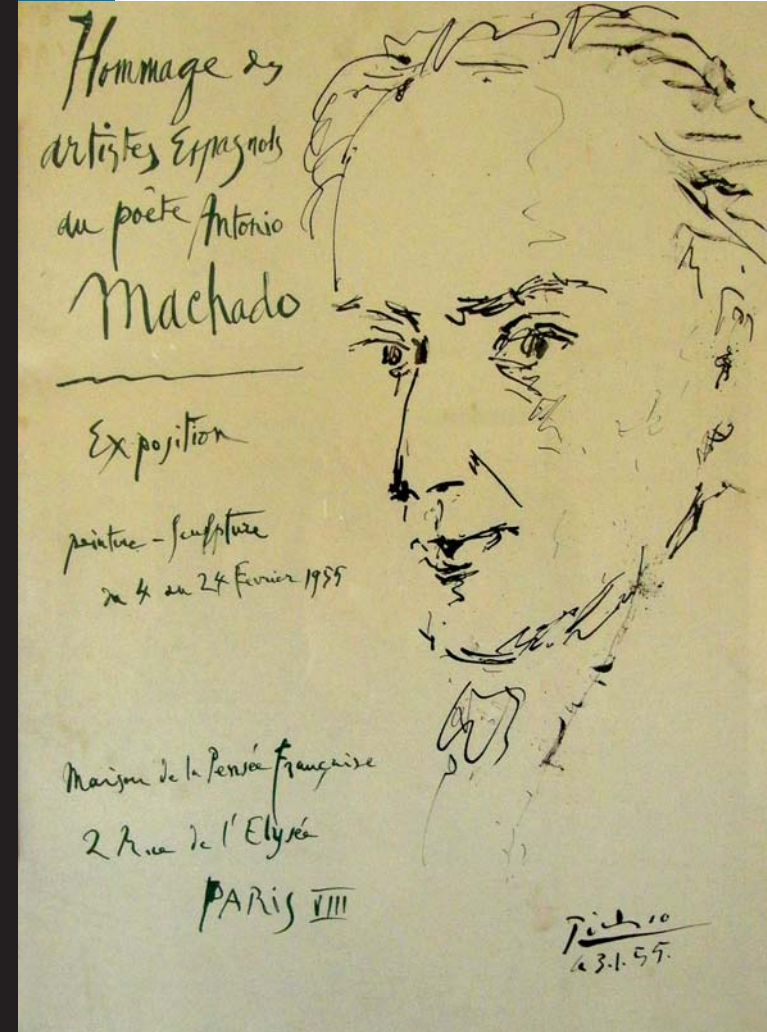 Hommage des
artistes Espagnols
au poète Antonio
Machado
Exposition
peinture - sculpture
du 4 au 24 Fevrier 1955
Maison de la Pensée Française
2 Rue de l'Elysée
PARIS VIII
Picasso
le 3.1.55.